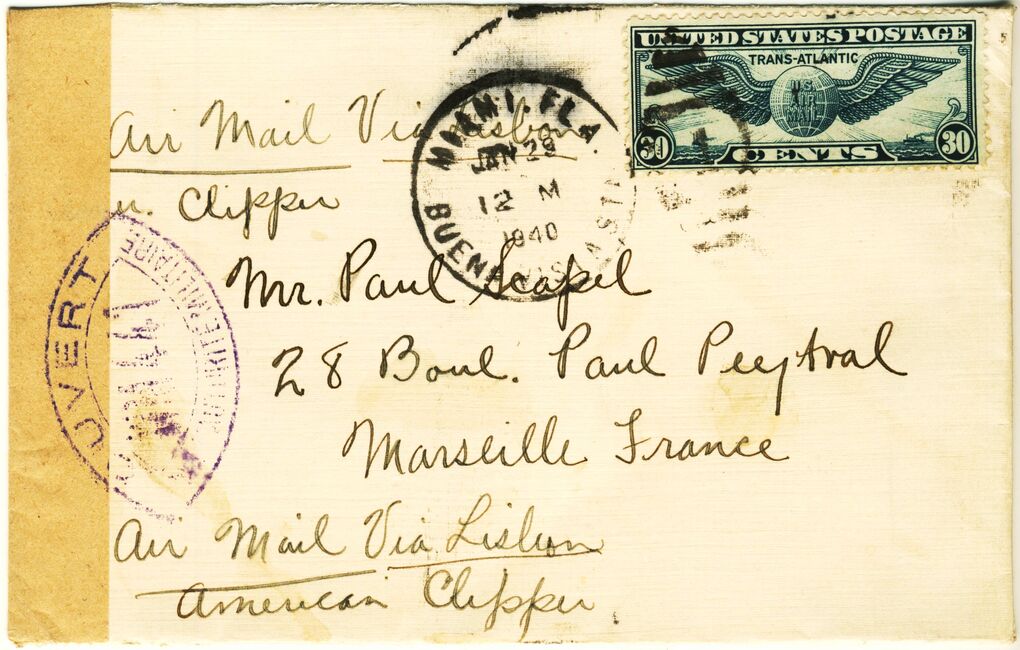 UNITED STATES POSTAGE
TRANS-ATLANTIC
U.S.
AIR
MAIL
30 CENTS 30
MIAMI, FLA.
JAN 29
12 M
1940
BUENA VISTA STA
Air Mail Via Lisbon
Clipper
Mr. Paul Scapel
28 Boul. Paul Peytral
Marseille France
Air Mail Via Lisbon
American Clipper
OUVERT
AUTORITÉ MILITAIRE